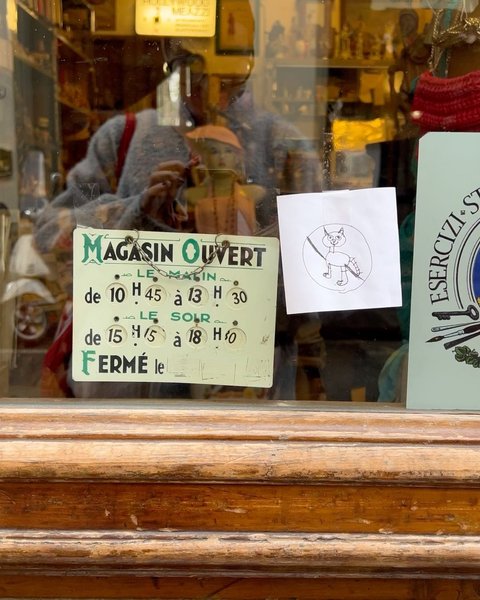 MAGASIN OUVERT
LE MATIN
de 10 H 45 à 13 H 30
LE SOIR
de 15 H à 18 H
FERMÉ le
ESERCIZI